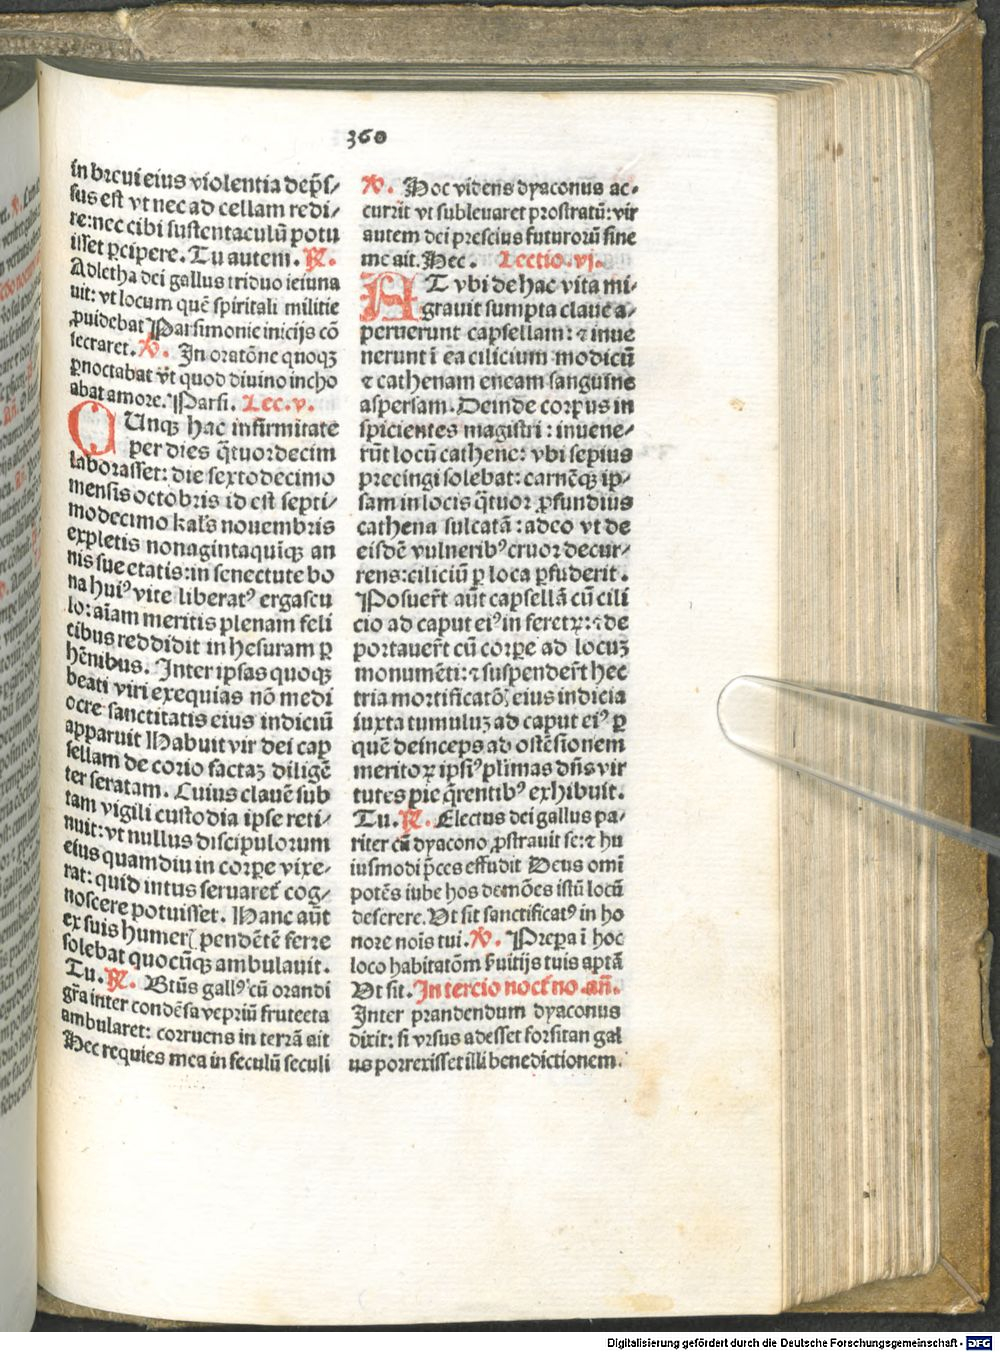 360
in breui eius violentia dep̄s/
sus est vt nec ad cellam redi/
re: nec cibi sustentaculū potu
isset ꝑcipere. Tu autem. ℟.
Adletha dei gallus triduo ieiuna
uit: vt locum quē spiritali militie
ꝓuidebat Parsimonie inicijs cō
secraret. ℣. In oratōne quoqꝫ
ꝑnoctabat vt quod diuino incho
abat amore. Parsi. Lec. v.
CUnqꝫ hac infirmitate
per dies q̄tuordecim
laborasset: die sextodecimo
mensis octobris id est septi/
modecimo kal's nouembris
expletis nonagintaquīqꝫ an
nis sue etatis: in senectute bo
na huiꝰ vite liberatꝰ ergascu
lo: aīam meritis plenam feli
cibus reddidit in hesuram ꝑ
hēnibus. Inter ipsas quoqꝫ
beati viri exequias nō medi
ocre sanctitatis eius indiciū
apparuit Habuit vir dei cap
sellam de corio factaꝫ diligē
ter seratam. Cuius clauē sub
tam vigili custodia ipse reti/
nuit: vt nullus discipulorum
eius quamdiu in corꝑe vixe/
rat: quid intus seruaret cog/
noscere potuisset. Hanc aūt
ex suis humerꝭ pendētē ferre
solebat quocūqꝫ ambulauit.
Tu. ℟. Btūs gallꝰ cū orandi
gr̄a inter condēsa vepriū fruteeta
ambularet: corruens in terrā ait
Hec requies mea in seculū seculi
℣. Hoc videns dyaconus ac/
currit vt subleuaret prostratū: vir
autem dei prescius futurorū sine
me ait. Hec. Lectio. vj.
AT vbi de hac vita mi/
grauit sumpta claue a/
peruerunt capsellam: ⁊ inue
nerunt ī ea cilicium modicū
⁊ cathenam eneam sanguine
aspersam. Deinde corpus in
spicientes magistri: inuene/
rūt locū cathene: vbi sepius
precingi solebat: carnēqꝫ ip/
sam in locis q̄tuor ꝓfundius
cathena sulcatā: adeo vt de
eisdē vulneribꝰ cruor decur/
rens: ciliciū ꝑ loca ꝑfuderit.
Posuer̄t aūt capsellā cū cili
cio ad caput eiꝰ in feretꝝ: ⁊ de
portauer̄t cū corꝑe ad locuꝫ
monumēti: ⁊ suspender̄t hec
tria mortificatōꝭ eius indicia
iuxta tumuluꝫ ad caput eiꝰ ꝑ
quē deinceps ad ostēsionem
meritoꝝ ipsiꝰ plimas dn̄s vir
tutes pie q̄rentibꝰ exhibuit.
Tu. ℟. Electus dei gallus pa/
riter cū dyacono ꝓstrauit se: ⁊ hu
iusmodi p̄ces effudit Deus omī
potēs iube hos demōes istū locū
deserere. Vt sit sanctificatꝰ in ho
nore noīs tui. ℣. Prepa ī hoc
loco habitatōm ẜuitijs tuis aptā
Vt sit. In tercio noct̄no. an̄.
Inter prandendum dyaconus
dixit: si vrsus adesset forsitan gal
us porrexisset illi benedictionem.
Digitalisierung gefördert durch die Deutsche Forschungsgemeinschaft - DFG